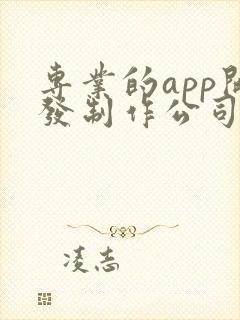 專業的app開
發制作公司
凌志